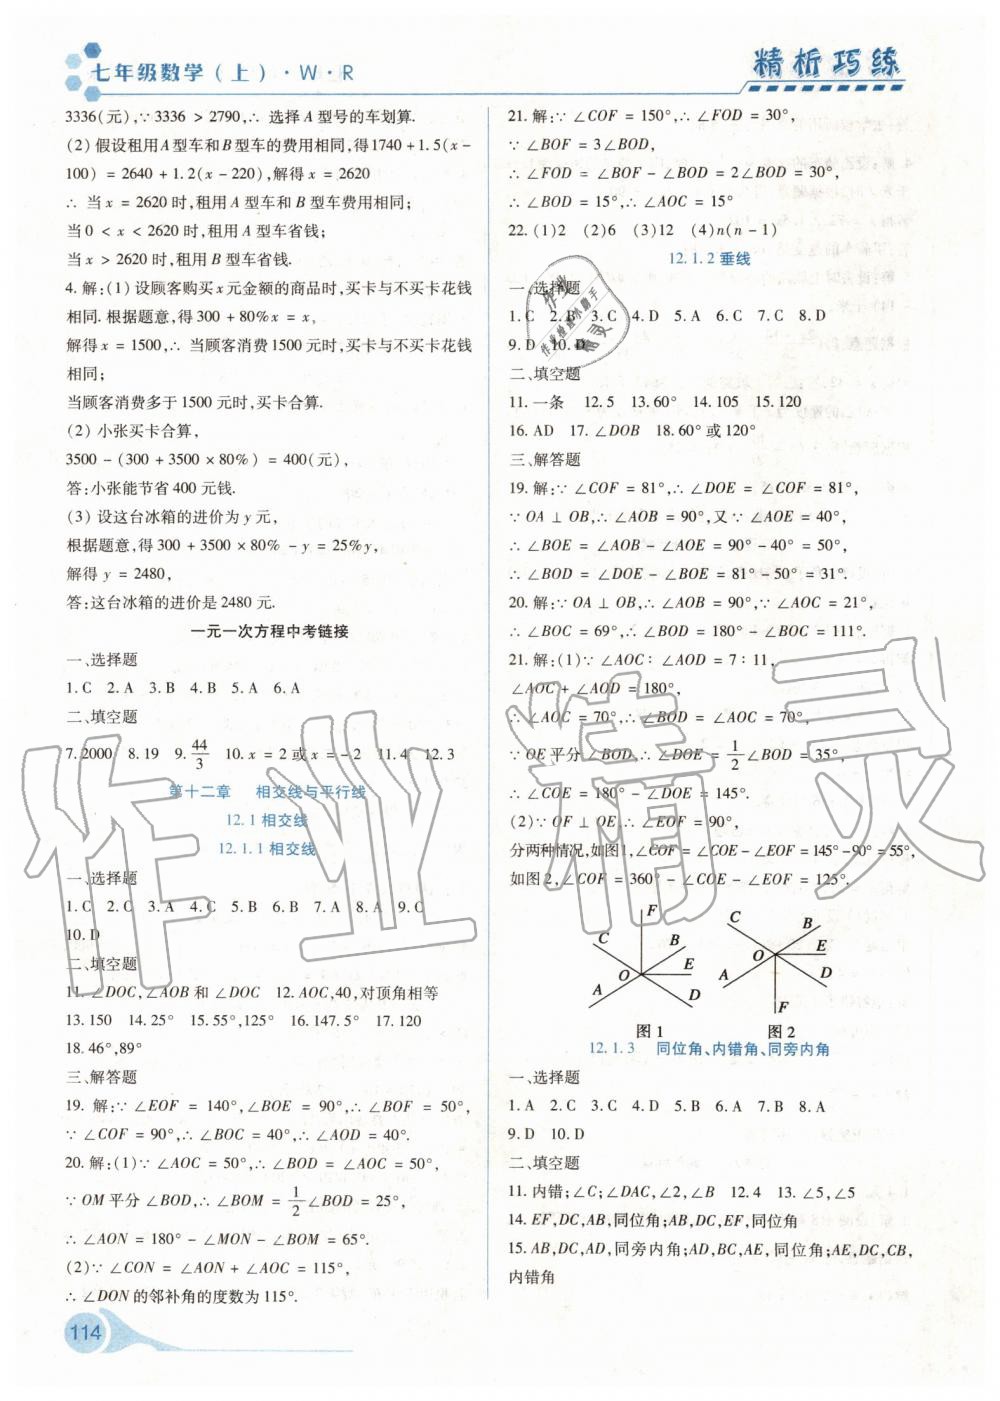 七年级数学(上)·W·R
精析巧练
3336(元),∵3336 > 2790,∴ 选择 A 型号的车划算.
(2) 假设租用 A 型车和 B 型车的费用相同,得1740 + 1.5(x -
100) = 2640 + 1.2(x - 220),解得 x = 2620
∴ 当 x = 2620 时,租用 A 型车和 B 型车费用相同;
当 0 < x < 2620 时,租用 A 型车省钱;
当 x > 2620 时,租用 B 型车省钱.
4. 解:(1) 设顾客购买 x 元金额的商品时,买卡与不买卡花钱
相同. 根据题意,得 300 + 80% x = x,
解得 x = 1500,∴ 当顾客消费 1500 元时,买卡与不买卡花钱
相同;
当顾客消费多于 1500 元时,买卡合算.
(2) 小张买卡合算,
3500 - (300 + 3500 × 80%) = 400(元),
答:小张能节省 400 元钱.
(3) 设这台冰箱的进价为 y 元,
根据题意,得 300 + 3500 × 80% - y = 25% y,
解得 y = 2480,
答:这台冰箱的进价是 2480 元.
一元一次方程中考链接
一、选择题
1. C 2. A 3. B 4. B 5. A 6. A
二、填空题
7. 2000 8. 19 9. 44/3 10. x = 2 或 x = - 2 11. 4 12. 3
第十二章 相交线与平行线
12.1 相交线
12.1.1 相交线
一、选择题
1. C 2. C 3. A 4. C 5. B 6. B 7. A 8. A 9. C
10. D
二、填空题
11. ∠DOC,∠AOB 和 ∠DOC 12. AOC,40,对顶角相等
13. 150 14. 25° 15. 55°,125° 16. 147.5° 17. 120
18. 46°,89°
三、解答题
19. 解:∵ ∠EOF = 140°,∠BOE = 90°,∴ ∠BOF = 50°,
∵ ∠COF = 90°,∴ ∠BOC = 40°,∴ ∠AOD = 40°.
20. 解:(1)∵ ∠AOC = 50°,∴ ∠BOD = ∠AOC = 50°,
∵ OM 平分 ∠BOD,∴ ∠BOM = 1/2 ∠BOD = 25°,
∴ ∠AON = 180° - ∠MON - ∠BOM = 65°.
(2)∵ ∠CON = ∠AON + ∠AOC = 115°,
∴ ∠DON 的邻补角的度数为 115°.
114
21. 解:∵ ∠COF = 150°,∴ ∠FOD = 30°,
∵ ∠BOF = 3∠BOD,
∴ ∠FOD = ∠BOF - ∠BOD = 2∠BOD = 30°,
∴ ∠BOD = 15°,∴ ∠AOC = 15°
22. (1)2 (2)6 (3)12 (4)n(n - 1)
12.1.2 垂线
一、选择题
1. C 2. B 3. C 4. D 5. A 6. C 7. C 8. D
9. D 10. D
二、填空题
11. 一条 12. 5 13. 60° 14. 105 15. 120
16. AD 17. ∠DOB 18. 60° 或 120°
三、解答题
19. 解:∵ ∠COF = 81°,∴ ∠DOE = ∠COF = 81°,
∵ OA ⊥ OB,∴ ∠AOB = 90°,又∵ ∠AOE = 40°,
∴ ∠BOE = ∠AOB - ∠AOE = 90° - 40° = 50°,
∴ ∠BOD = ∠DOE - ∠BOE = 81° - 50° = 31°.
20. 解:∵ OA ⊥ OB,∴ ∠AOB = 90°,∵ ∠AOC = 21°,
∴ ∠BOC = 69°,∴ ∠BOD = 180° - ∠BOC = 111°.
21. 解:(1)∵ ∠AOC∶∠AOD = 7∶11,
∠AOC + ∠AOD = 180°,
∴ ∠AOC = 70°,∴ ∠BOD = ∠AOC = 70°,
∵ OE 平分 ∠BOD,∴ ∠DOE = 1/2 ∠BOD = 35°,
∴ ∠COE = 180° - ∠DOE = 145°.
(2)∵ OF ⊥ OE,∴ ∠EOF = 90°,
分两种情况,如图1,∠COF = ∠COE - ∠EOF = 145° - 90° = 55°,
如图 2,∠COF = 360° - ∠COE - ∠EOF = 125°.
F C B O E A D
图 1
C B O E A D F
图 2
12.1.3 同位角、内错角、同旁内角
一、选择题
1. A 2. C 3. C 4. D 5. A 6. A 7. B 8. A
9. D 10. D
二、填空题
11. 内错;∠C;∠DAC,∠2,∠B 12. 4 13. ∠5,∠5
14. EF,DC,AB,同位角;AB,DC,EF,同位角
15. AB,DC,AD,同旁内角;AD,BC,AE,同位角;AE,DC,CB,
内错角
作业精灵